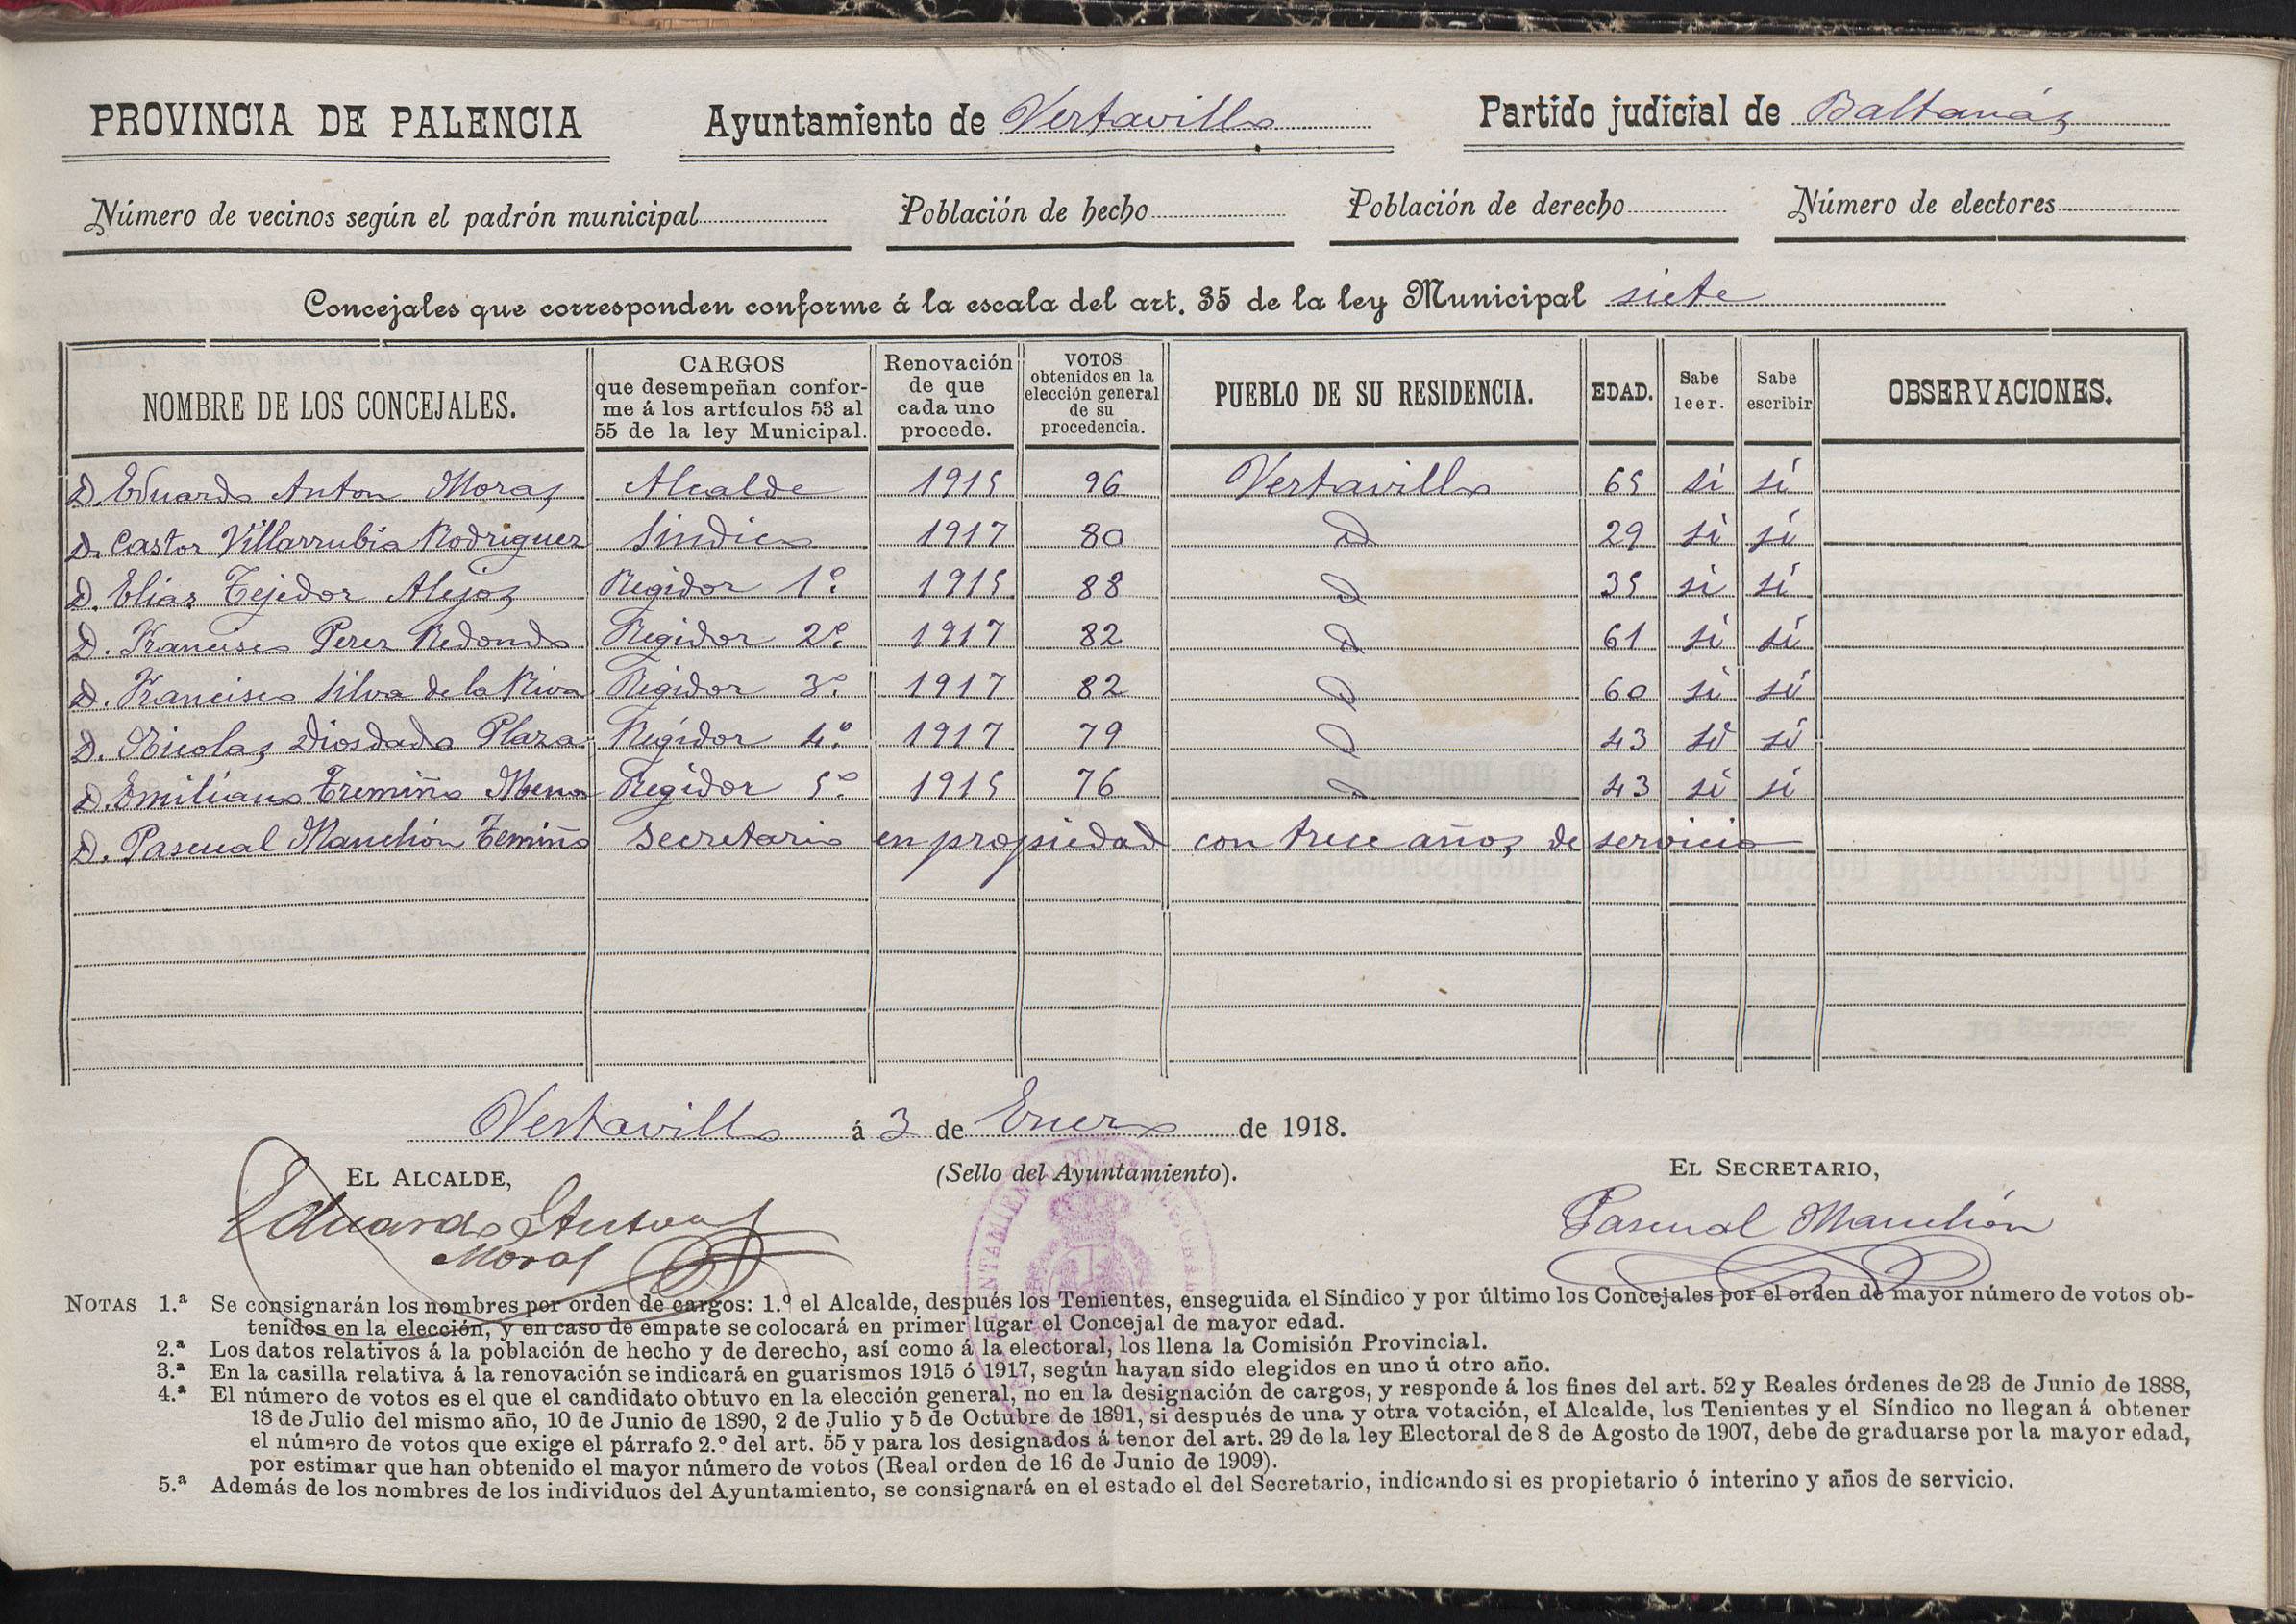 PROVINCIA DE PALENCIA Ayuntamiento de Vertavillo Partido judicial de Baltanás
Número de vecinos según el padrón municipal Población de hecho Población de derecho Número de electores
Concejales que corresponden conforme á la escala del art. 35 de la ley Municipal siete
NOMBRE DE LOS CONCEJALES. CARGOS que desempeñan conforme á los artículos 53 al 55 de la ley Municipal. Renovación de que cada uno procede. VOTOS obtenidos en la elección general de su procedencia. PUEBLO DE SU RESIDENCIA. EDAD. Sabe leer. Sabe escribir OBSERVACIONES.
D. Eduardo Anton Moras Alcalde 1915 96 Vertavillo 65 si sí
D. Castor Villarrubia Rodriguez Sindico 1917 80 D 29 si sí
D. Elias Tejedor Alejos Regidor 1º 1915 88 D 35 si sí
D. Francisco Perez Redondo Regidor 2º 1917 82 D 61 si sí
D. Francisco Silva de la Riva Regidor 3º 1917 82 D 60 si sí
D. Nicolas Diosdado Plaza Regidor 4º 1917 79 D 43 si sí
D. Emiliano Tremiño Mena Regidor 5º 1915 76 D 43 si sí
D. Pascual Manchón Temiño Secretario en propiedad con trece años de servicio
Vertavillo á 3 de Enero de 1918.
EL ALCALDE, (Sello del Ayuntamiento). EL SECRETARIO,
Eduardo Anton Pascual Manchón
Moras
NOTAS 1.ª Se consignarán los nombres por orden de cargos: 1.º el Alcalde, después los Tenientes, enseguida el Síndico y por último los Concejales por el orden de mayor número de votos ob-
tenidos en la elección, y en caso de empate se colocará en primer lugar el Concejal de mayor edad.
2.ª Los datos relativos á la población de hecho y de derecho, así como á la electoral, los llena la Comisión Provincial.
3.ª En la casilla relativa á la renovación se indicará en guarismos 1915 ó 1917, según hayan sido elegidos en uno ú otro año.
4.ª El número de votos es el que el candidato obtuvo en la elección general, no en la designación de cargos, y responde á los fines del art. 52 y Reales órdenes de 23 de Junio de 1888,
18 de Julio del mismo año, 10 de Junio de 1890, 2 de Julio y 5 de Octubre de 1891, si después de una y otra votación, el Alcalde, los Tenientes y el Síndico no llegan á obtener
el número de votos que exige el párrafo 2.º del art. 55 y para los designados á tenor del art. 29 de la ley Electoral de 8 de Agosto de 1907, debe de graduarse por la mayor edad,
por estimar que han obtenido el mayor número de votos (Real orden de 16 de Junio de 1909).
5.ª Además de los nombres de los individuos del Ayuntamiento, se consignará en el estado el del Secretario, indicando si es propietario ó interino y años de servicio.